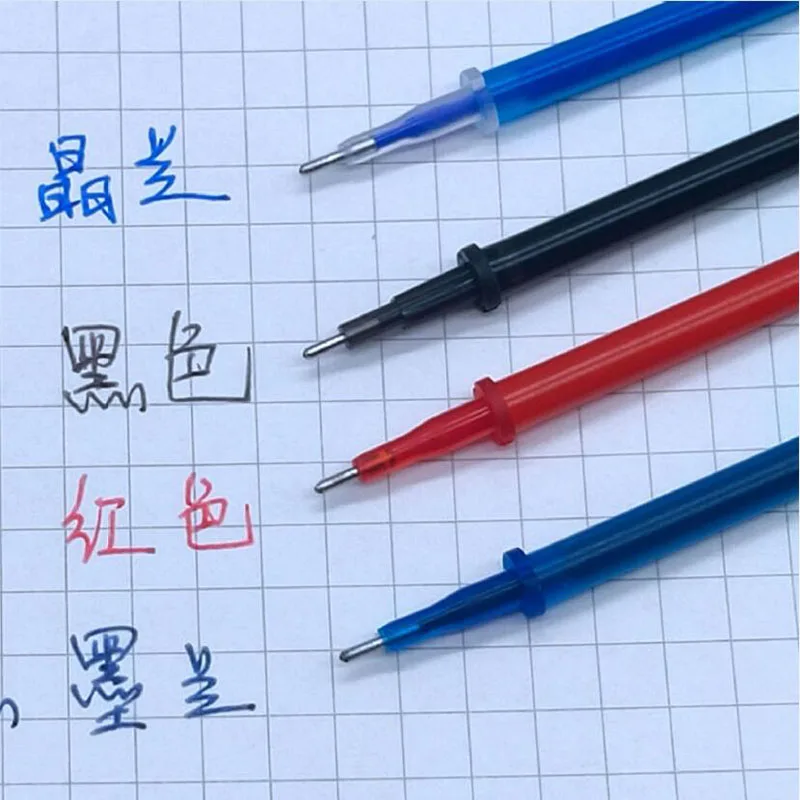 晶兰
黑色
红色
墨兰